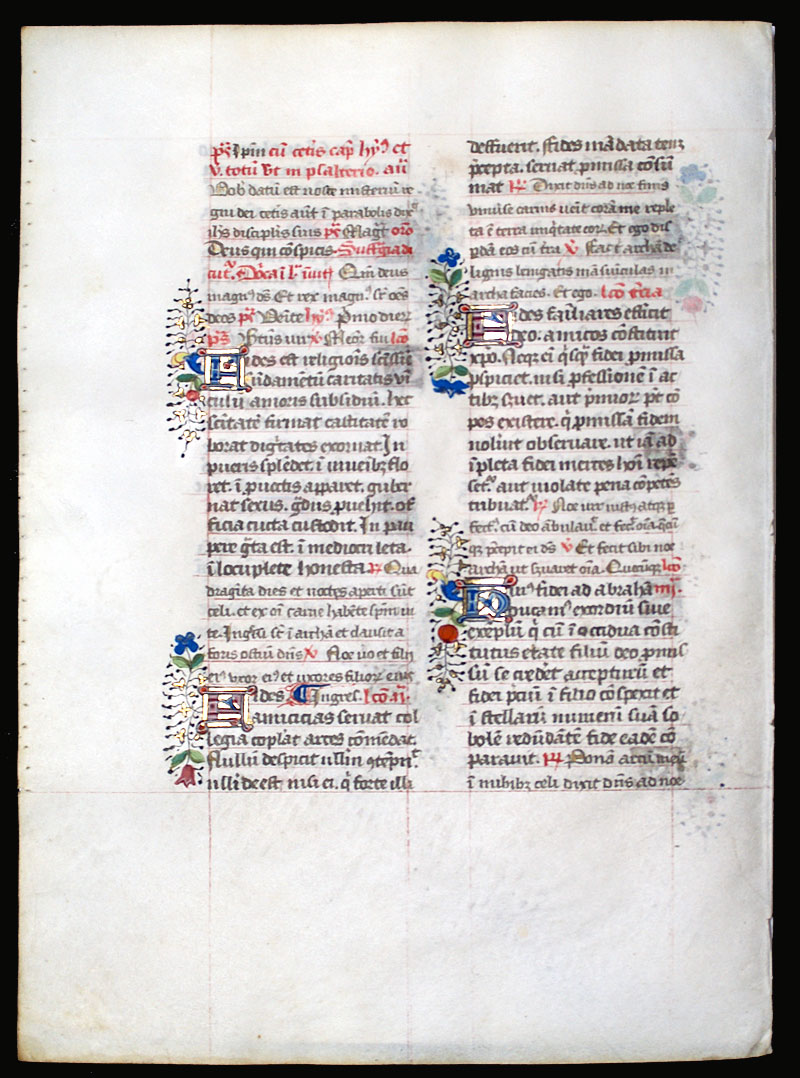 ps̄ Ip̄m cū cetis cap̄ hyꝰ et
v. totū vt in psalterio. añ
Vob datū est nosse misteriū re
gni dei cetis aūt ī parabolis dixᵗ
ihs disciplis suis ps̄ Magt̄ oro
Deus qui cōspicis. Suffragia di
Qm̄ deus
magnꝰ dn̄s Et rex magnꝰ sr̄ oēs
deos ps̄ Venite hyꝰ Primo dierꝝ
ps̄
Fides est religionis scīssimū
fūdamētū caritatis vī
culū amoris subsidiū. hec
scītatē firmat castitatē ro
borat dignitates exornat. In
pueris splēdet. ī iuuēibꝫ flo
ret. ī prouectis apparet. guber
nat sexus. gͣdus prouehit. of
ficia cūcta custodit. In pau
pere gͣta est. ī mediocri leta.
ī locuplete honesta ℟ Qua
dragīta dies et noctes aperti sūt
celi. et ex oī carne habēte spm̄ ui
te. Ingressi sūt ī archā et clausit a
foris ostiū dn̄s ℣ Noe uo et filij
eiꝰ vxor eiꝰ et uxores filiorꝝ eiꝰ
Fides Ingres. lc̄o .ij.
amicicias seruat col
legia coplat artes cōmēdat.
Nullū despicit nllm̄ ꝯtēpnit.
nulli deest. nisi ei. q̄ forte illi
deffuerit. Fides mādata tenꝫ
p̄cepta. seruat. p̄missa cōsum
mat ℟ Dixit dn̄s ad noe finis
vniuse carnis uenit corā me reple
ta ē terra iniqͥtate eorꝝ. Et ego dis
pdā eos cū tra ℣ Fac tͥ archā de
lignis leuigatis māsiūculas in
archa facies. Et ego. lc̄o t̄cia
Fides familiares efficit
deo. amicos cōstituit
xp̄o. Neqꝫ ei qͥsqꝫ fidei p̄missa
pspiciet. nisi pfessionē ī ac
tibꝫ seruet. aut priuor pt̄ cō
pos existere. q̄ p̄missam fidem
noluit obseruare. ut iā ad
īpleta fidei merites
set. aut violate pena cōpetēs
tribuat. ℟ Noe uir iustꝰ atqꝫ p
fectꝰ. cū deo ābulauit. et fecit oīa
qꝫ p̄cepit ei dn̄s ℣ Et fecit sibi noe
archā ut saluaret oīa. Quecūqꝫ lc̄o
Huiꝰ fidei ad abrahā iiij.
ducamꝰ exordiū siue
exēplū q̄ cū ī occidua cōsti
tutus etate filiū deo p̄mis
sū se crederet accepturū et
fidei p̄ciū ī filio cōspexit et
ī stellarū numerū suā so
bolē redūdātē fide eadē cō
parauit. ℟ Ponā arcū meū
ī nubibꝫ celi dixit dn̄s ad noe